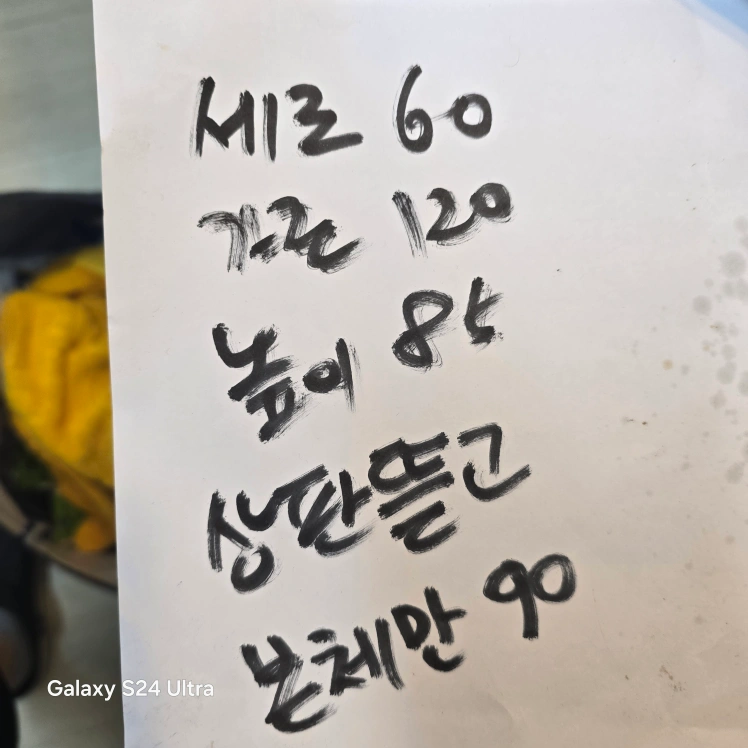 세로 60
가로 120
높이 85
상판뜯고
본체만 90
Galaxy S24 Ultra